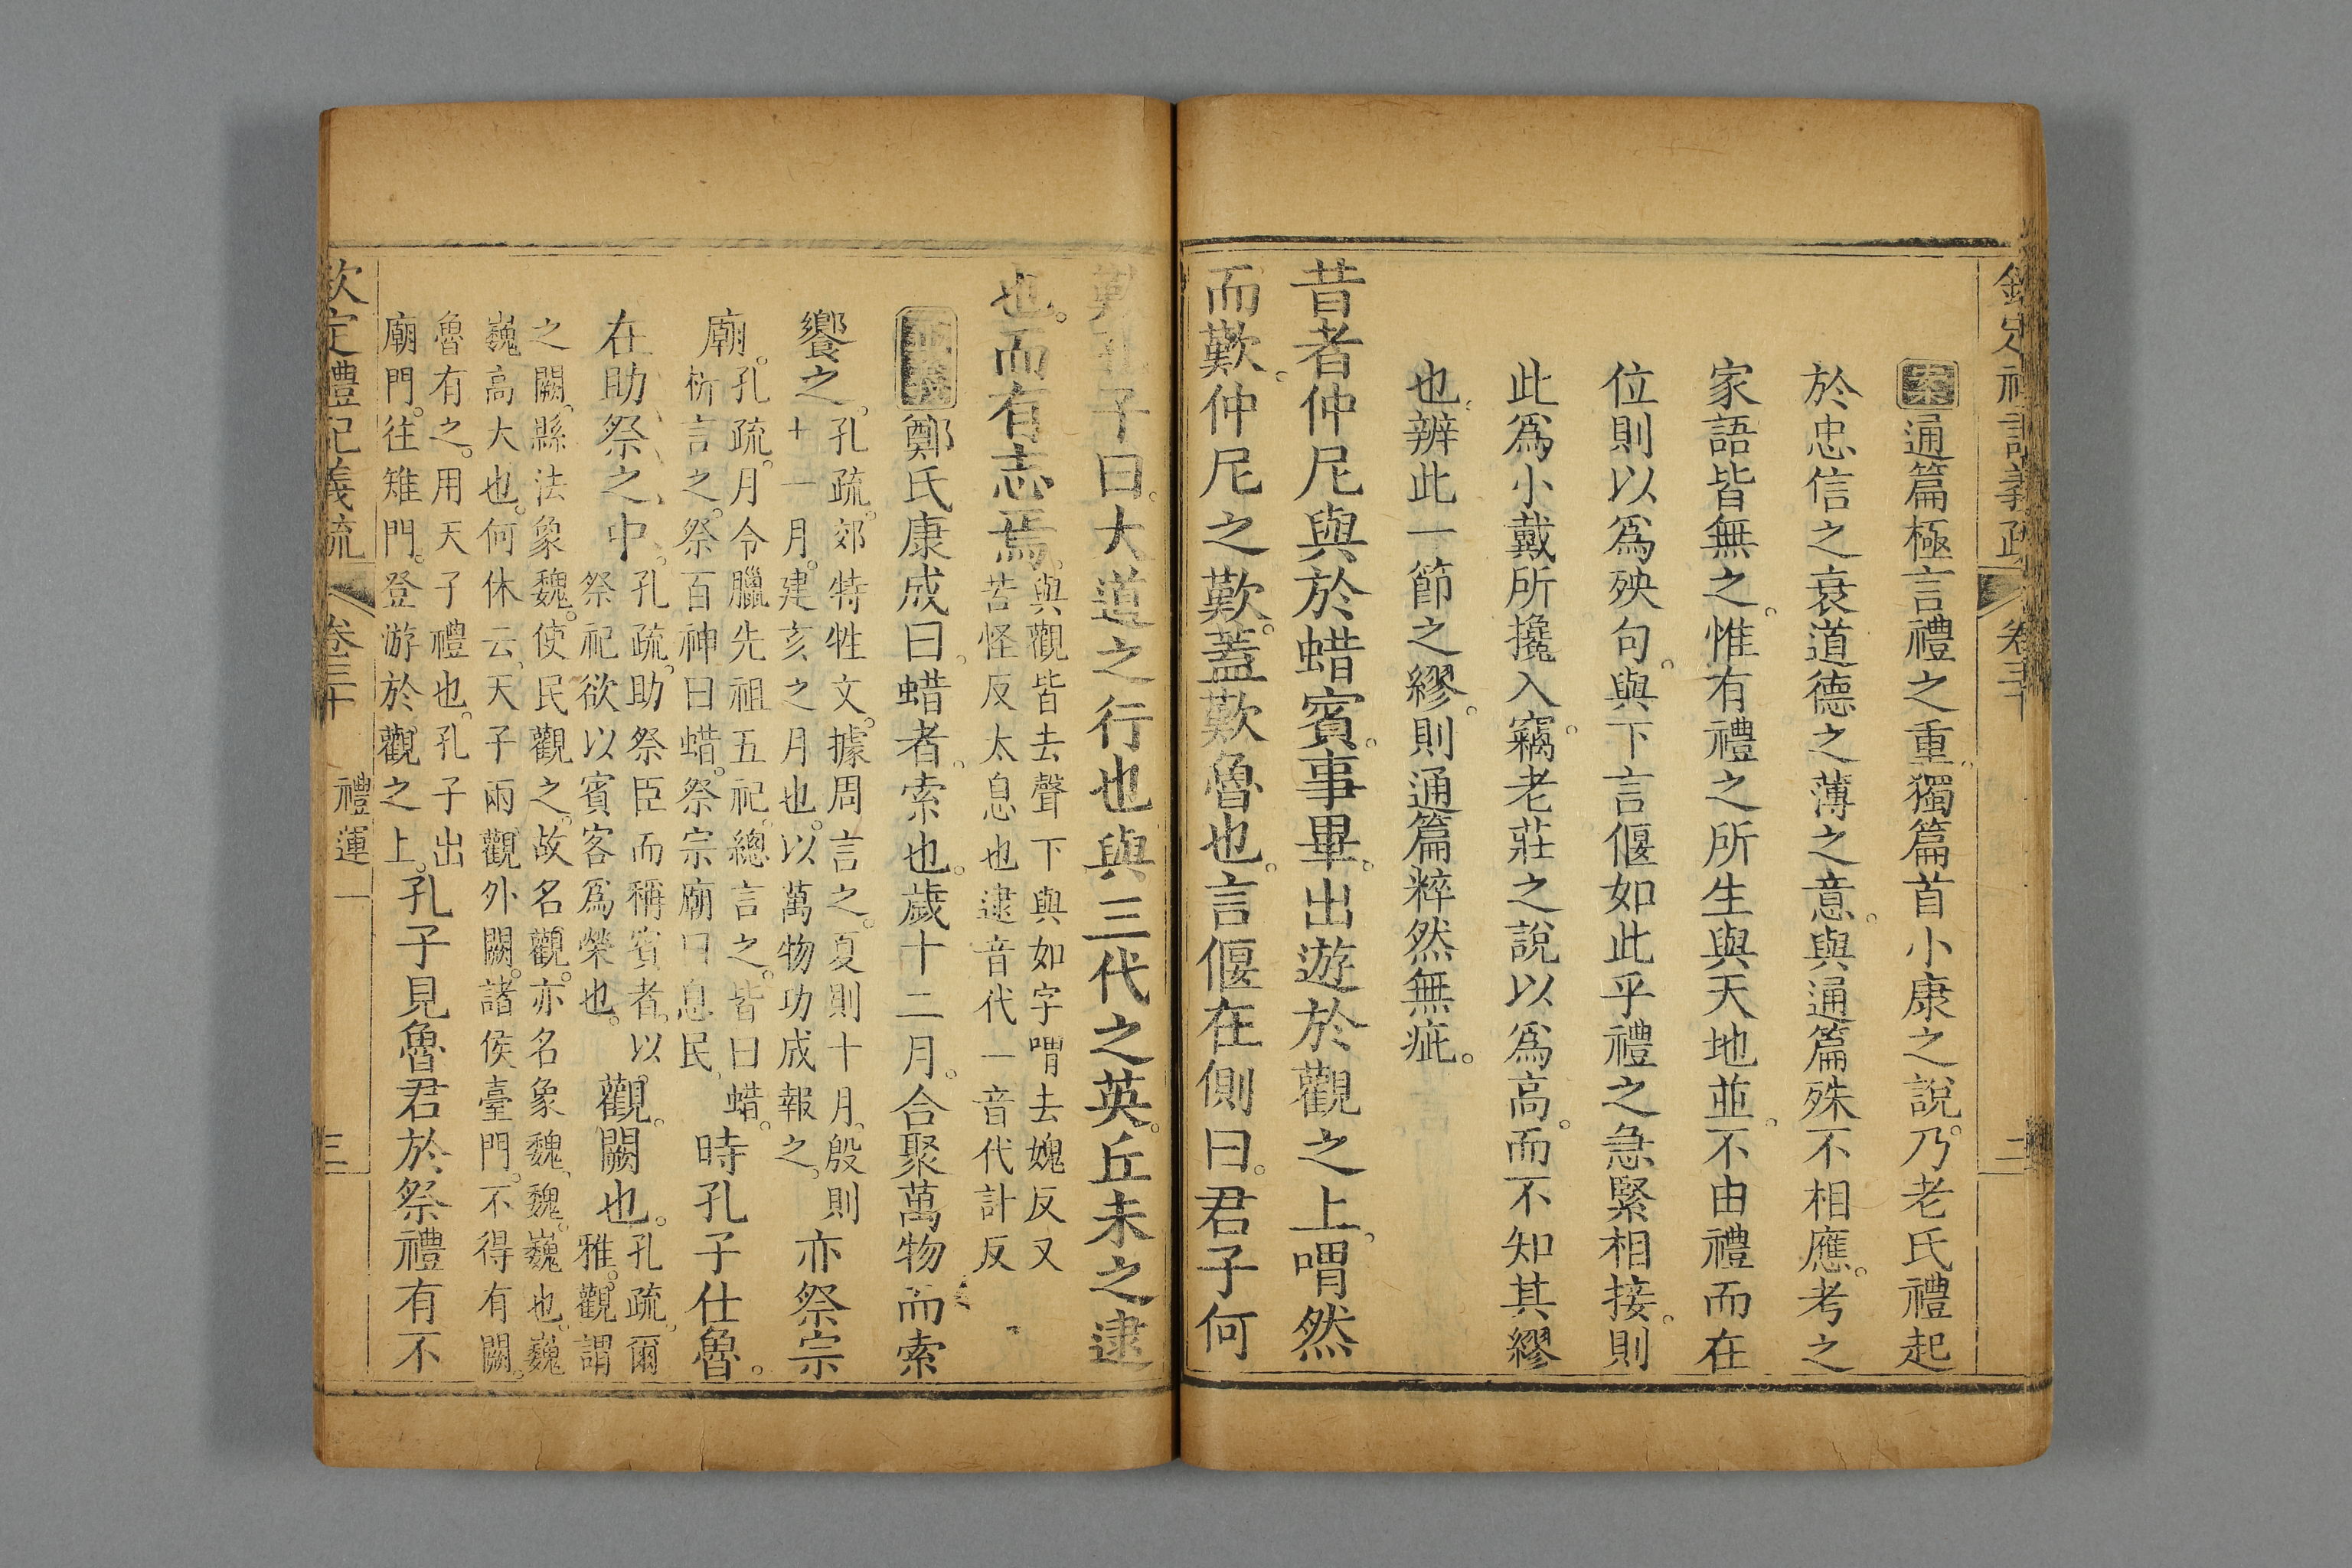 欽定禮記義疏 卷三十 二
案通篇極言禮之重獨篇首小康之說乃老氏禮起
於忠信之衰道德之薄之意與通篇殊不相應考之
家語皆無之惟有禮之所生與天地並不由禮而在
位則以爲殃句與下言偃如此乎禮之急緊相接則
此爲小戴所攙入竊老莊之說以爲高而不知其繆
也辨此一節之繆則通篇粹然無疵
昔者仲尼與於蜡賓事畢出遊於觀之上喟然
而歎仲尼之歎蓋歎魯也言偃在側曰君子何
歎孔子曰大道之行也與三代之英丘未之逮
也而有志焉
與觀皆去聲下與如字喟去媿反又
苦怪反太息也逮音代一音代計反
鄭氏康成曰蜡者索也歲十二月合聚萬物而索
饗之
孔疏郊特牲文據周言之夏則十月殷則
十一月建亥之月也以萬物功成報之
亦祭宗
廟
孔疏月令臘先祖五祀總言之皆曰蜡
析言之祭百神曰蜡祭宗廟曰息民
時孔子仕魯
在助祭之中
孔疏助祭臣而稱賓者以
祭祀欲以賓客爲榮也
觀闕也
孔疏爾
雅觀謂
之闕縣法象魏使民觀之故名觀亦名象魏魏巍也巍
巍高大也何休云天子兩觀外闕諸侯臺門不得有闕
魯有之用天子禮也孔子出
廟門往雉門登游於觀之上
孔子見魯君於祭禮有不
欽定禮記義疏 卷三十 禮運一 三